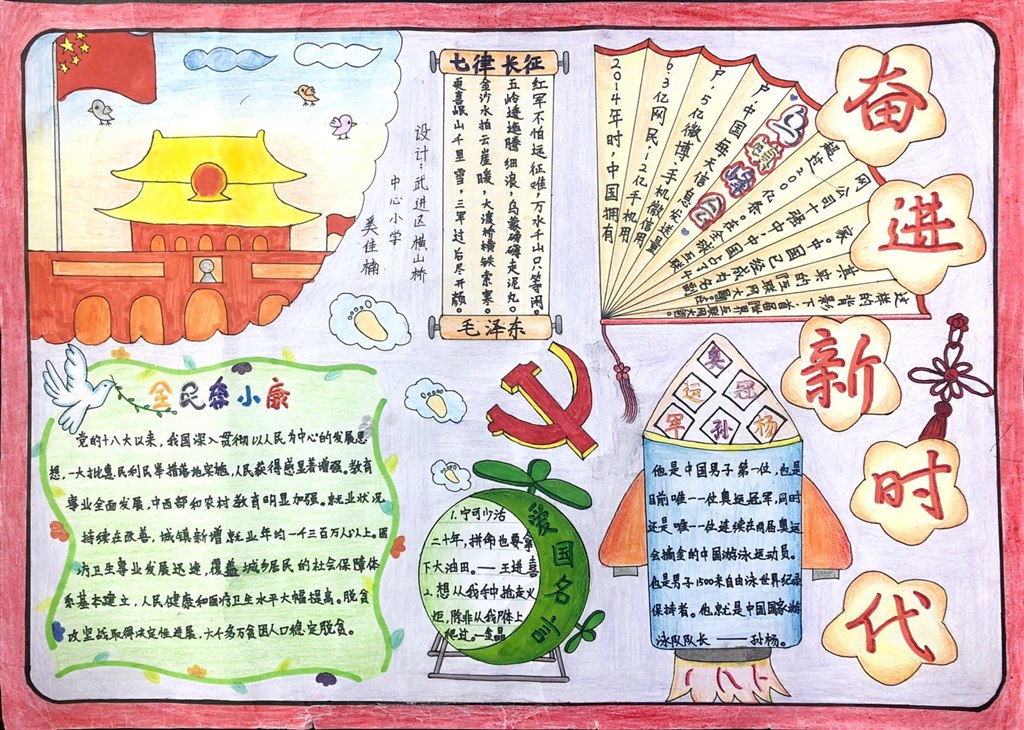 奋
进
新
时
代
设计：武进区横山桥
中心小学
奚佳楠
七律长征
红军不怕远征难，万水千山只等闲。
五岭逶迤腾细浪，乌蒙磅礴走泥丸。
金沙水拍云崖暖，大渡桥横铁索寒。
更喜岷山千里雪，三军过后尽开颜。
毛泽东
2014年时，中国拥有
6.3亿网民，12亿手机用
户，5亿微博、手机微信用
户，中国每天信息发送量
超过200亿条。在全球互联
网公司十强中，中国占了4
家。中国已经成为名副
其实的"互联网大国"。在
这样的背影下首届世界互联网大会。
全民奔小康
党的十八大以来，我国深入贯彻以人民为中心的发展思
想，一大批惠民利民举措落地实施，人民获得感显著增强。教育
事业全面发展，中西部和农村教育明显加强。就业状况
持续在改善，城镇新增就业年均一千三百万人以上。医
疗卫生事业发展迅速，覆盖城乡居民的社会保障体
系基本建立，人民健康和医疗卫生水平大幅提高。脱贫
攻坚战取得决定性进展，六千多万贫困人口稳定脱贫。
爱国名言
1.宁可少活
二十年，拼命也要拿
下大油田。—王进喜
2.想从我手中抢走火
炬，除非从我尸体上
爬过。—金晶
奥
运 冠
军 孙 杨
他是中国男子第一位，也是
目前唯一一位奥运冠军，同时
还是唯一一位连续在两届奥运
会摘金的中国游泳运动员。
也是男子1500米自由泳世界纪录
保持者。他就是中国国家游
泳队队长——孙杨。